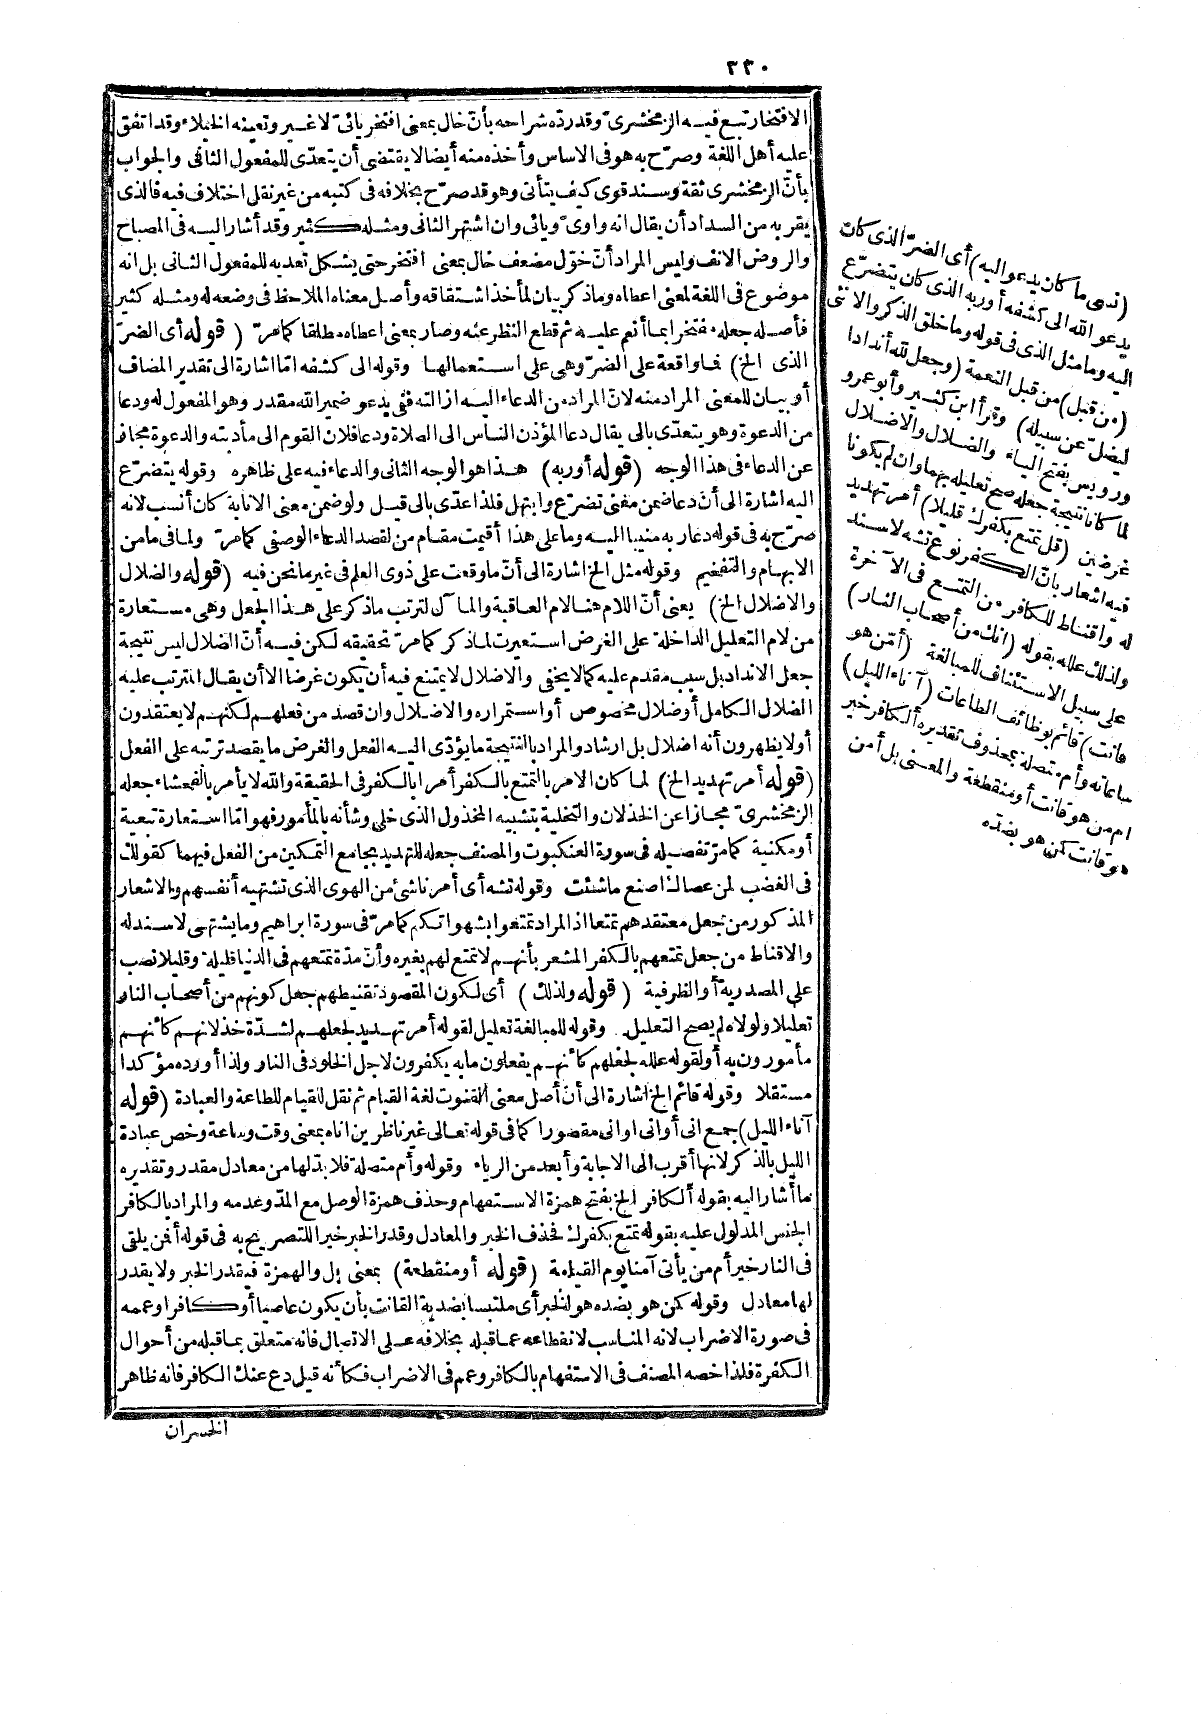 ٣٣٠
الافتخار تبع فيه الزمخشرىّ وقد ردّه شراحه بأنّ خال بمعنى افتخر يائىّ لا غير وتعينه الخيلاء وقد اتفق
عليه أهل اللغة وصرّح به هو فى الاساس وأخذه منه أيضا لا يقتضى أن يتعدّى للمفعول الثانى والجواب
بأنّ الزمخشرى ثقة وسند قوى كيف يتأتى وهو قد صرّح بخلافه فى كتبه من غير نقل اختلاف فيه فالذى
يقربه من السداد أن يقال انه واوىّ ويائى وان اشتهر الثانى ومثله كثير وقد أشار اليه فى المصباح
والروض الانف وليس المراد أنّ خوّل مضعف خال بمعنى افتخر حتى يشكل تعديه للمفعول الثانى بل انه
موضوع فى اللغة لمعنى اعطاه وما ذكر بيان لمأخذ اشتقاقه وأصل معناه الملاحظ فى وضعه له ومثله كثير
فأصله جعله مفتخرا بما أنعم عليه ثم قطع النظر عنه وصار بمعنى اعطاه مطلقا كما مرّ (قوله أى الضرّ
الذى الخ) فما واقعة على الضرّ وهى على استعمالها وقوله الى كشفه امّا اشارة الى تقدير المضاف
أو بيان للمعنى المراد منه لانّ المراد من الدعاء اليه ازالته ففى يدعو ضمير الله مقدر وهو المفعول له ودعا
من الدعوة وهو يتعدّى بالى يقال دعا المؤذن الناس الى الصلاة ودعا فلان القوم الى مأدبته والدعوة مجاز
عن الدعاء فى هذا الوجه (قوله أو ربه) هذا هو الوجه الثانى والدعاء فيه على ظاهره وقوله يتضرّع
اليه اشارة الى أنّ دعا ضمن معنى تضرّع وابتهل فلذا عدّى بالى قيل ولو ضمن معنى الانابة كان أنسب لانه
صرّح به فى قوله دعا ربه منيبا اليه وما على هذا أقيمت مقام من لقصد الدعاء الوصفى كما مرّ ولما فى ما من
الابهام والتفخيم وقوله مثل الخ اشارة الى أنّ ما وقعت على ذوى العلم فى غير ما نحن فيه (قوله والضلال
والاضلال الخ) يعنى أنّ اللام هنا لام العاقبة والمآل لترتب ما ذكر على هذا الجعل وهى مستعارة
من لام التعليل الداخلة على الغرض استعيرت لما ذكر كما مرّ تحقيقه لكن فيه أنّ الضلال ليس نتيجة
جعل الانداد بل سبب مقدم عليه كما لا يخفى والاضلال لا يمتنع فيه أن يكون غرضا الا أن يقال المترتب عليه
الضلال الكامل أو ضلال مخصوص أو استمراره والاضلال وان قصد من فعلهم لكنهم لا يعتقدون
أو لا يظهرون أنه اضلال بل ارشاد والمراد بالنتيجة ما يؤدّى اليه الفعل والغرض ما يقصد ترتبه على الفعل
(قوله أمر تهديد الخ) لما كان الامر بالتمتع بالكفر أمرا بالكفر فى الحقيقة والله لا يأمر بالفحشاء جعله
الزمخشرى مجازا عن الخذلان والتخلية بتشبيه المخذول الذى خلى وشأنه بالمأمور فهو امّا استعارة تبعية
أو مكنية كما مرّ تفصيله فى سورة العنكبوت والمصنف جعله للتهديد بجامع التمكين من الفعل فيهما كقولك
فى الغضب لمن عصاك اصنع ما شئت وقوله تشه أى أمر ناشئ من الهوى الذى تشتهيه أنفسهم والاشعار
المذكور من جعل معتقدهم تمتعا اذ المراد تمتعوا بشهواتكم كما مرّ فى سورة ابراهيم وما يشتهى لا سند له
والاقناط من جعل تمتعهم بالكفر المشعر بأنهم لا تمتع لهم بغيره وأنّ مدّة تمتعهم فى الدنيا قليلة وقليلا نصب
على المصدرية أو الظرفية (قوله ولذلك) أى لكون المقصود تقنيطهم جعل كونهم من أصحاب النار
تعليلا ولولاه لم يصح التعليل وقوله للمبالغة تعليل لقوله أمر تهديد لجعلهم لشدّة خذلانهم كأنهم
مأمورون به أو لقوله علله لجعلهم كأنهم يفعلون ما به يكفرون لاجل الخلود فى النار ولذا أورده مؤكدا
مستقلا وقوله قائم الخ اشارة الى أنّ أصل معنى القنوت لغة القيام ثم نقل للقيام للطاعة والعبادة (قوله
آناء الليل) جمع انى أو انى مقصورا كما فى قوله تعالى غير ناظرين اناه بمعنى وقت وساعة وخص عبادة
الليل بالذكر لانها أقرب الى الاجابة وأبعد من الرياء وقوله وأم متصلة فلا بدّ لها من معادل مقدر وتقديره
ما أشار اليه بقوله ألكافر الخ بفتح همزة الاستفهام وحذف همزة الوصل مع المدّ وعدمه والمراد بالكافر
الجنس المدلول عليه بقوله تمتع بكفرك فحذف الخبر والمعادل وقدر الخبر خيرا للتصريح به فى قوله أفمن يلقى
فى النار خير أم من يأتى آمنا يوم القيامة (قوله أو منقطعة) بمعنى بل والهمزة فيقدر الخبر ولا يقدر
لها معادل وقوله كمن هو بضده هو الخبر أى ملتبسا بضدية القانت بأن يكون عاصيا أو كافرا وعممه
فى صورة الاضراب لانه المناسب لانقطاعه عما قبله بخلافه على الاتصال فانه متعلق بما قبله من أحوال
الكفرة فلذا خصه المصنف فى الاستفهام بالكافر وعمم فى الاضراب فكأنه قيل دع عنك الكافر فانه ظاهر
الخسران
(نسى ما كان يدعو اليه) أى الضرّ الذى كان
يدعو الله الى كشفه أو ربه الذى كان يتضرّع
اليه وما مثل الذى فى قوله وما خلق الذكر والانثى
(من قبل) من قبل النعمة (وجعل لله أندادا
ليضل عن سبيله) وقرأ ابن كثير وأبو عمرو
ورويس بفتح الياء والضلال والاضلال
لما كانا نتيجة جعله صح تعليله بهما وان لم يكونا
غرضين (قل تمتع بكفرك قليلا) أمر تهديد
فيه اشعار بانّ الكفر نوع تشه لا سند
له واقناط للكافر من التمتع فى الآخرة
ولذلك علله بقوله (انك من أصحاب النار)
على سبيل الاستئناف للمبالغة (أمن هو
قانت) قائم بوظائف الطاعات (آناء الليل)
ساعاته وأم متصلة بمحذوف تقديره ألكافر خير
ام من هو قانت أو منقطعة والمعنى بل أمن
هو قانت كمن هو بضده